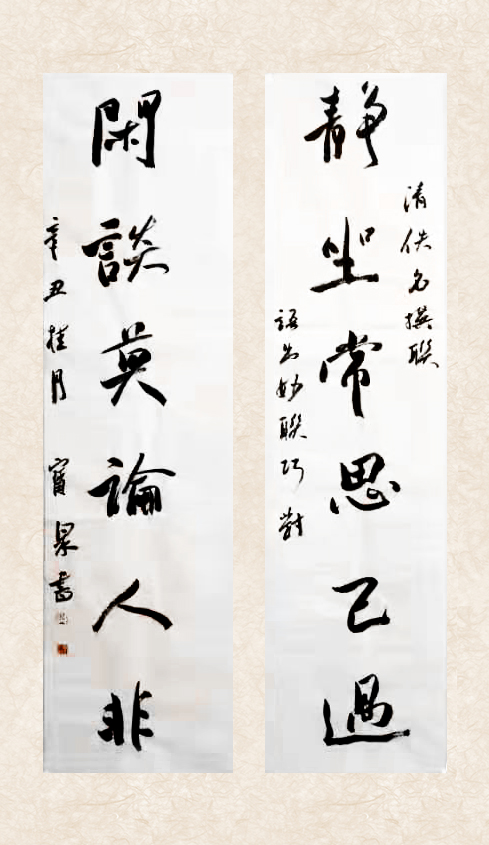 清佚名撰聯
静坐常思己過
語出妙聯巧對
閑談莫論人非
辛丑桂月